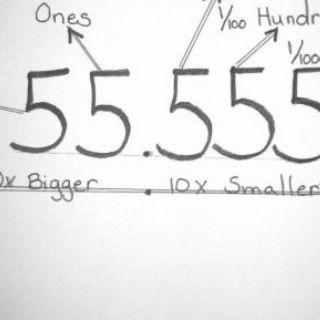 Ones 1/100 Hundr
1/100
55.555
0x Bigger . 10x Smaller